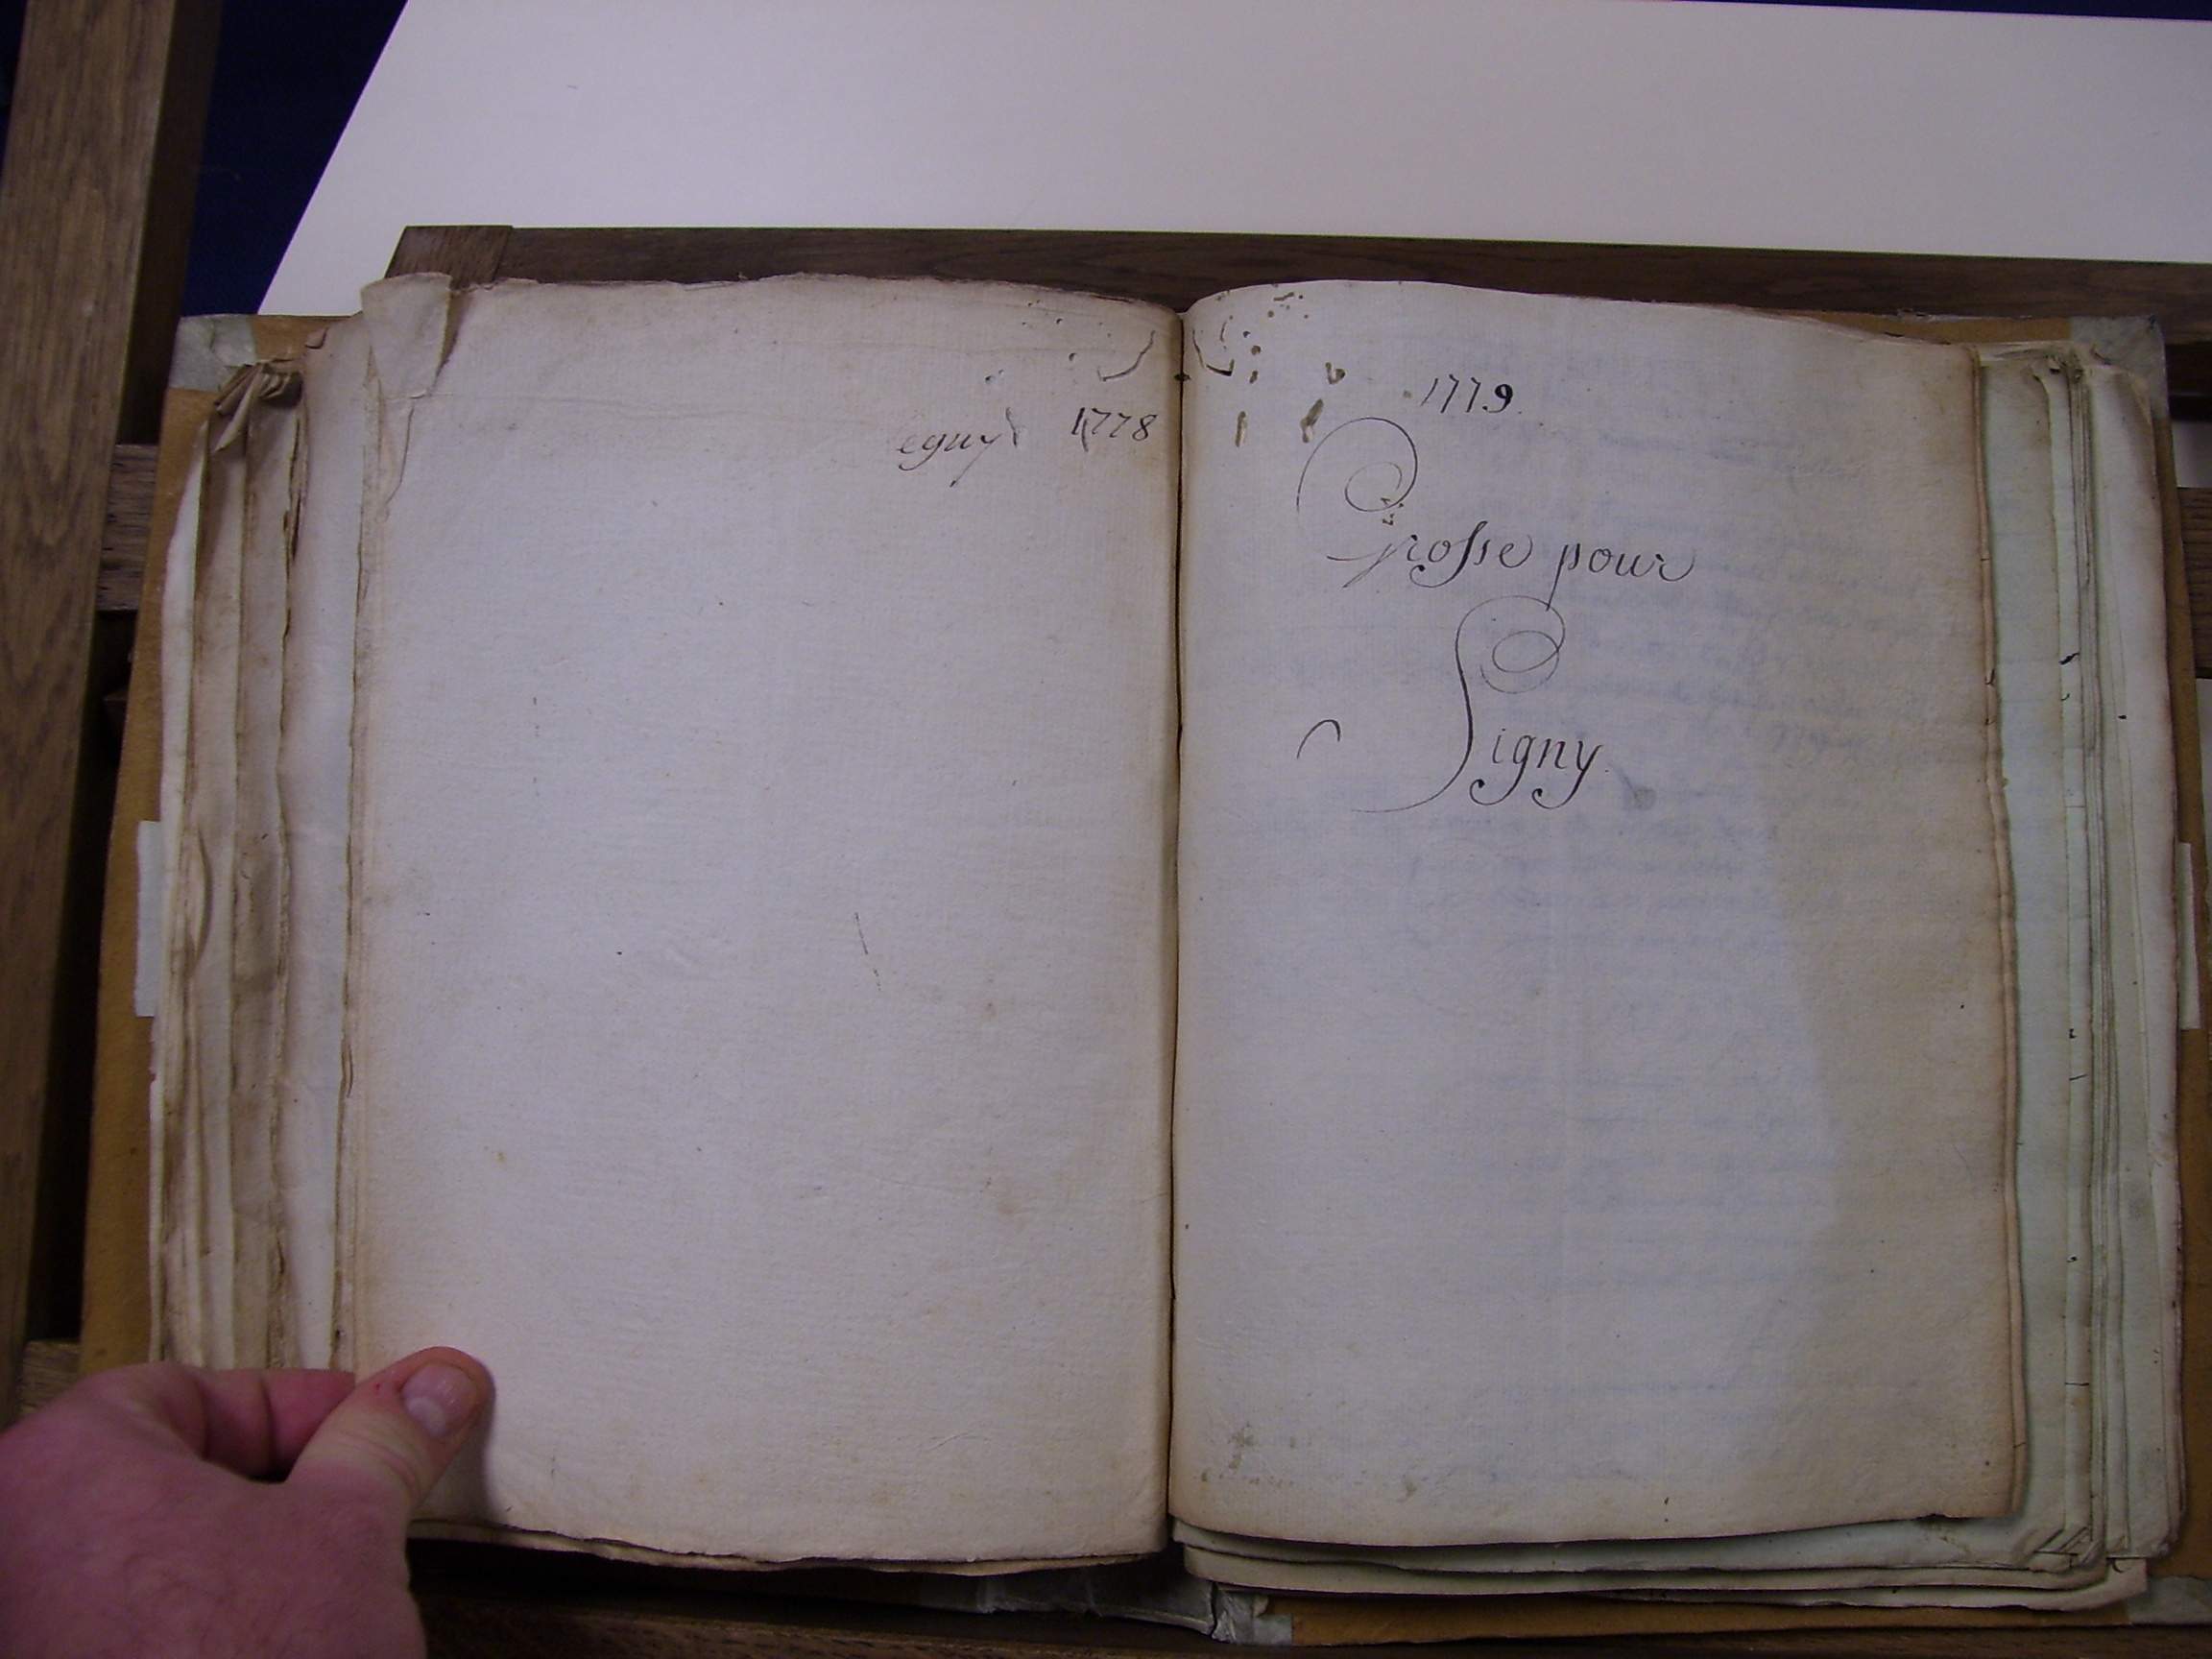 eguy 1778
1779
Grosse pour
Signy